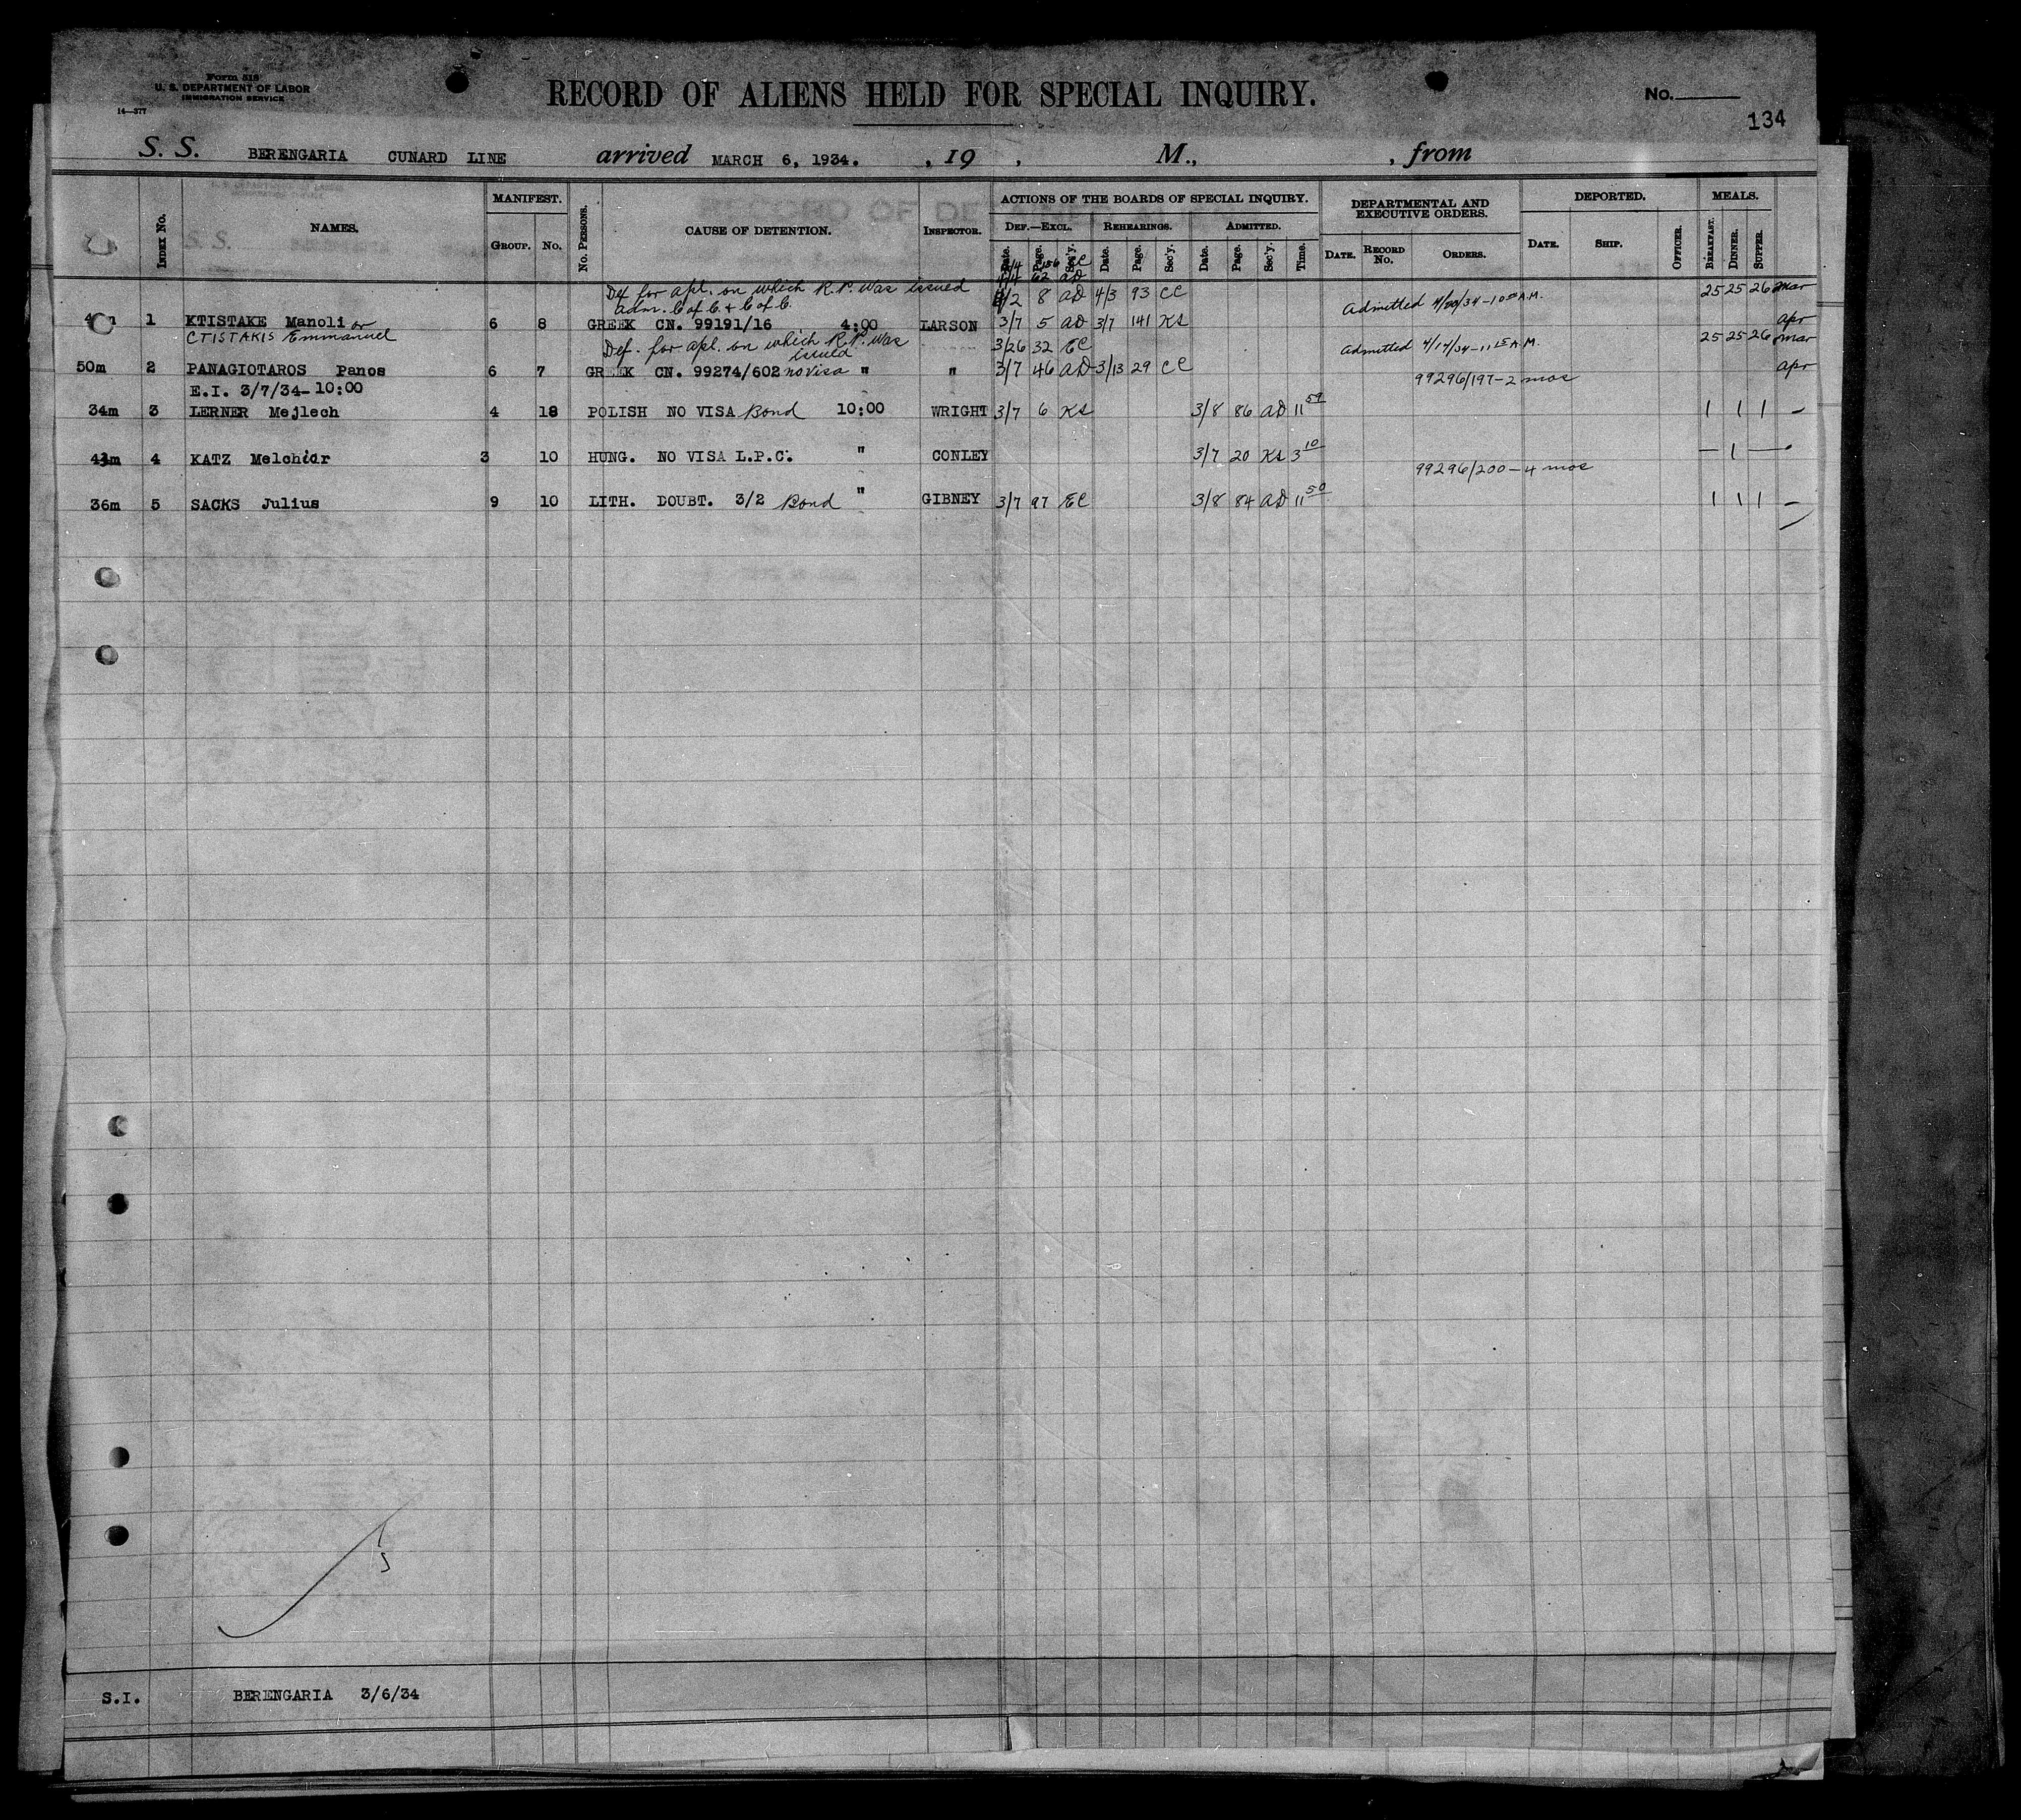 Form 518
U. S. DEPARTMENT OF LABOR
IMMIGRATION SERVICE
14—377
RECORD OF ALIENS HELD FOR SPECIAL INQUIRY.
No.
134
S. S. BERENGARIA CUNARD LINE arrived MARCH 6, 1934. , 19 , M., , from
INDEX No. NAMES. MANIFEST. GROUP. No. No. PERSONS. CAUSE OF DETENTION. INSPECTOR. ACTIONS OF THE BOARDS OF SPECIAL INQUIRY. DEF.—EXCL. Date. Page. Sec'y. REHEARINGS. Date. Page. Sec'y. ADMITTED. Date. Page. Sec'y. Time. DEPARTMENTAL AND EXECUTIVE ORDERS. DATE. RECORD No. ORDERS. DEPORTED. DATE. SHIP. OFFICER. MEALS. BREAKFAST. DINNER. SUPPER.
4/4 62 AD
Def for apl. on which R.P. was issued 4/2 8 AD 4/3 93 CC Admitted 4/20/34-10 A.M. 25 25 26 mar
adm. C of C + C of C.
1 KTISTAKE Manoli or 6 8 GREEK CN. 99191/16 4:00 LARSON 3/7 5 AD 3/7 141 KS apr
CTISTAKIS Emmanuel
Def. for apl. on which R.P. was issued 3/26 32 EC Admitted 4/17/34-11 15 A.M. 25 25 26 mar
50m 2 PANAGIOTAROS Panos 6 7 GREEK CN. 99274/602 no visa " " 3/7 46 AD 3/13 29 CC apr
E.I. 3/7/34-10:00 99296/197-2 mos
34m 3 LERNER Mejlech 4 18 POLISH NO VISA Bond 10:00 WRIGHT 3/7 6 KS 3/8 86 AD 11 59 1 1 1 -
43m 4 KATZ Melchior 3 10 HUNG. NO VISA L.P.C. " CONLEY 3/7 20 KS 3 10 - 1 -
99296/200-4 mos
36m 5 SACKS Julius 9 10 LITH. DOUBT. 3/2 Bond " GIBNEY 3/7 97 EC 3/8 84 AD 11 50 1 1 1 -
5
S.I. BERENGARIA 3/6/34